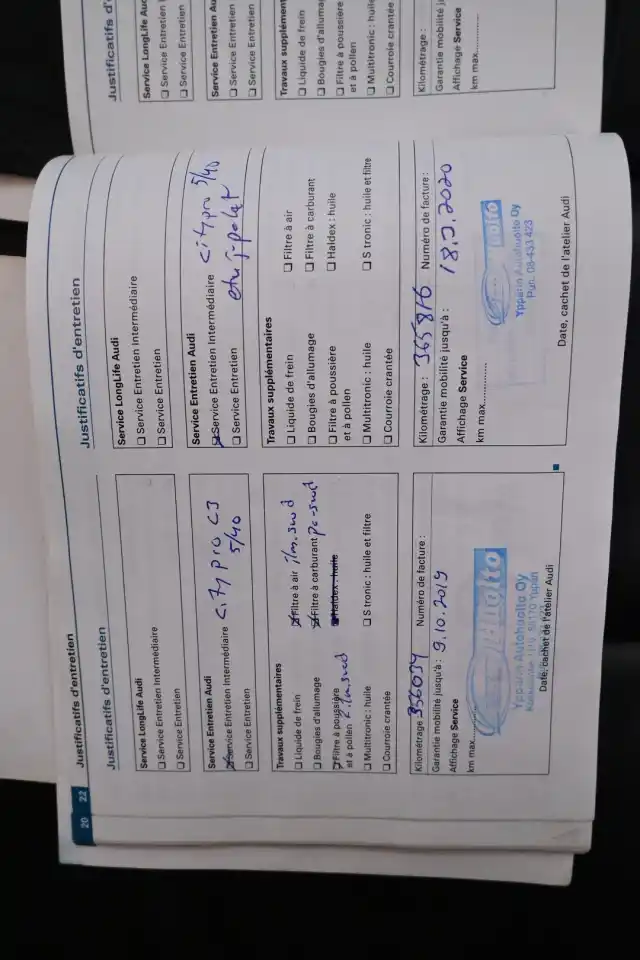 20 22 Justificatifs d'entretien
Justificatifs d'entretien
Service LongLife Audi
❏ Service Entretien Intermédiaire
❏ Service Entretien
Service Entretien Audi
Service Entretien Intermédiaire City pro C3
5/40
❏ Service Entretien
Travaux supplémentaires
❏ Liquide de frein
Filtre à air ilm.suod
❏ Bougies d'allumage
Filtre à carburant pa-suod
Filtre à poussière
et à pollen
Haldex : huile
❏ Multitronic : huile
❏ S tronic : huile et filtre
❏ Courroie crantée
Kilométrage 356054 Numéro de facture :
Garantie mobilité jusqu'à : 9.10.2019
Affichage Service
km max.
Autohuolto
Ypparin Autohuolto Oy
Date, cachet de l'atelier Audi
Justificatifs d'entretien
Service LongLife Audi
❏ Service Entretien Intermédiaire
❏ Service Entretien
Service Entretien Audi
Service Entretien Intermédiaire City pro 5/40
❏ Service Entretien
Travaux supplémentaires
❏ Liquide de frein
❏ Filtre à air
❏ Bougies d'allumage
❏ Filtre à carburant
❏ Filtre à poussière
et à pollen
❏ Haldex : huile
❏ Multitronic : huile
❏ S tronic : huile et filtre
❏ Courroie crantée
Kilométrage : 365816 Numéro de facture :
Garantie mobilité jusqu'à :
Affichage Service
km max.
Ypparin Autohuolto Oy
Puh. 08-433 423
Date, cachet de l'atelier Audi
Justificatifs d'
Service LongLife Aud
❏ Service Entretien
❏ Service Entretien
Service Entretien Au
❏ Service Entretien
❏ Service Entretien
Travaux supplément
❏ Liquide de frein
❏ Bougies d'alluma
❏ Filtre à poussière
et à pollen
❏ Multitronic : huile
❏ Courroie crantée
Kilométrage :
Garantie mobilité j
Affichage Service
km max.